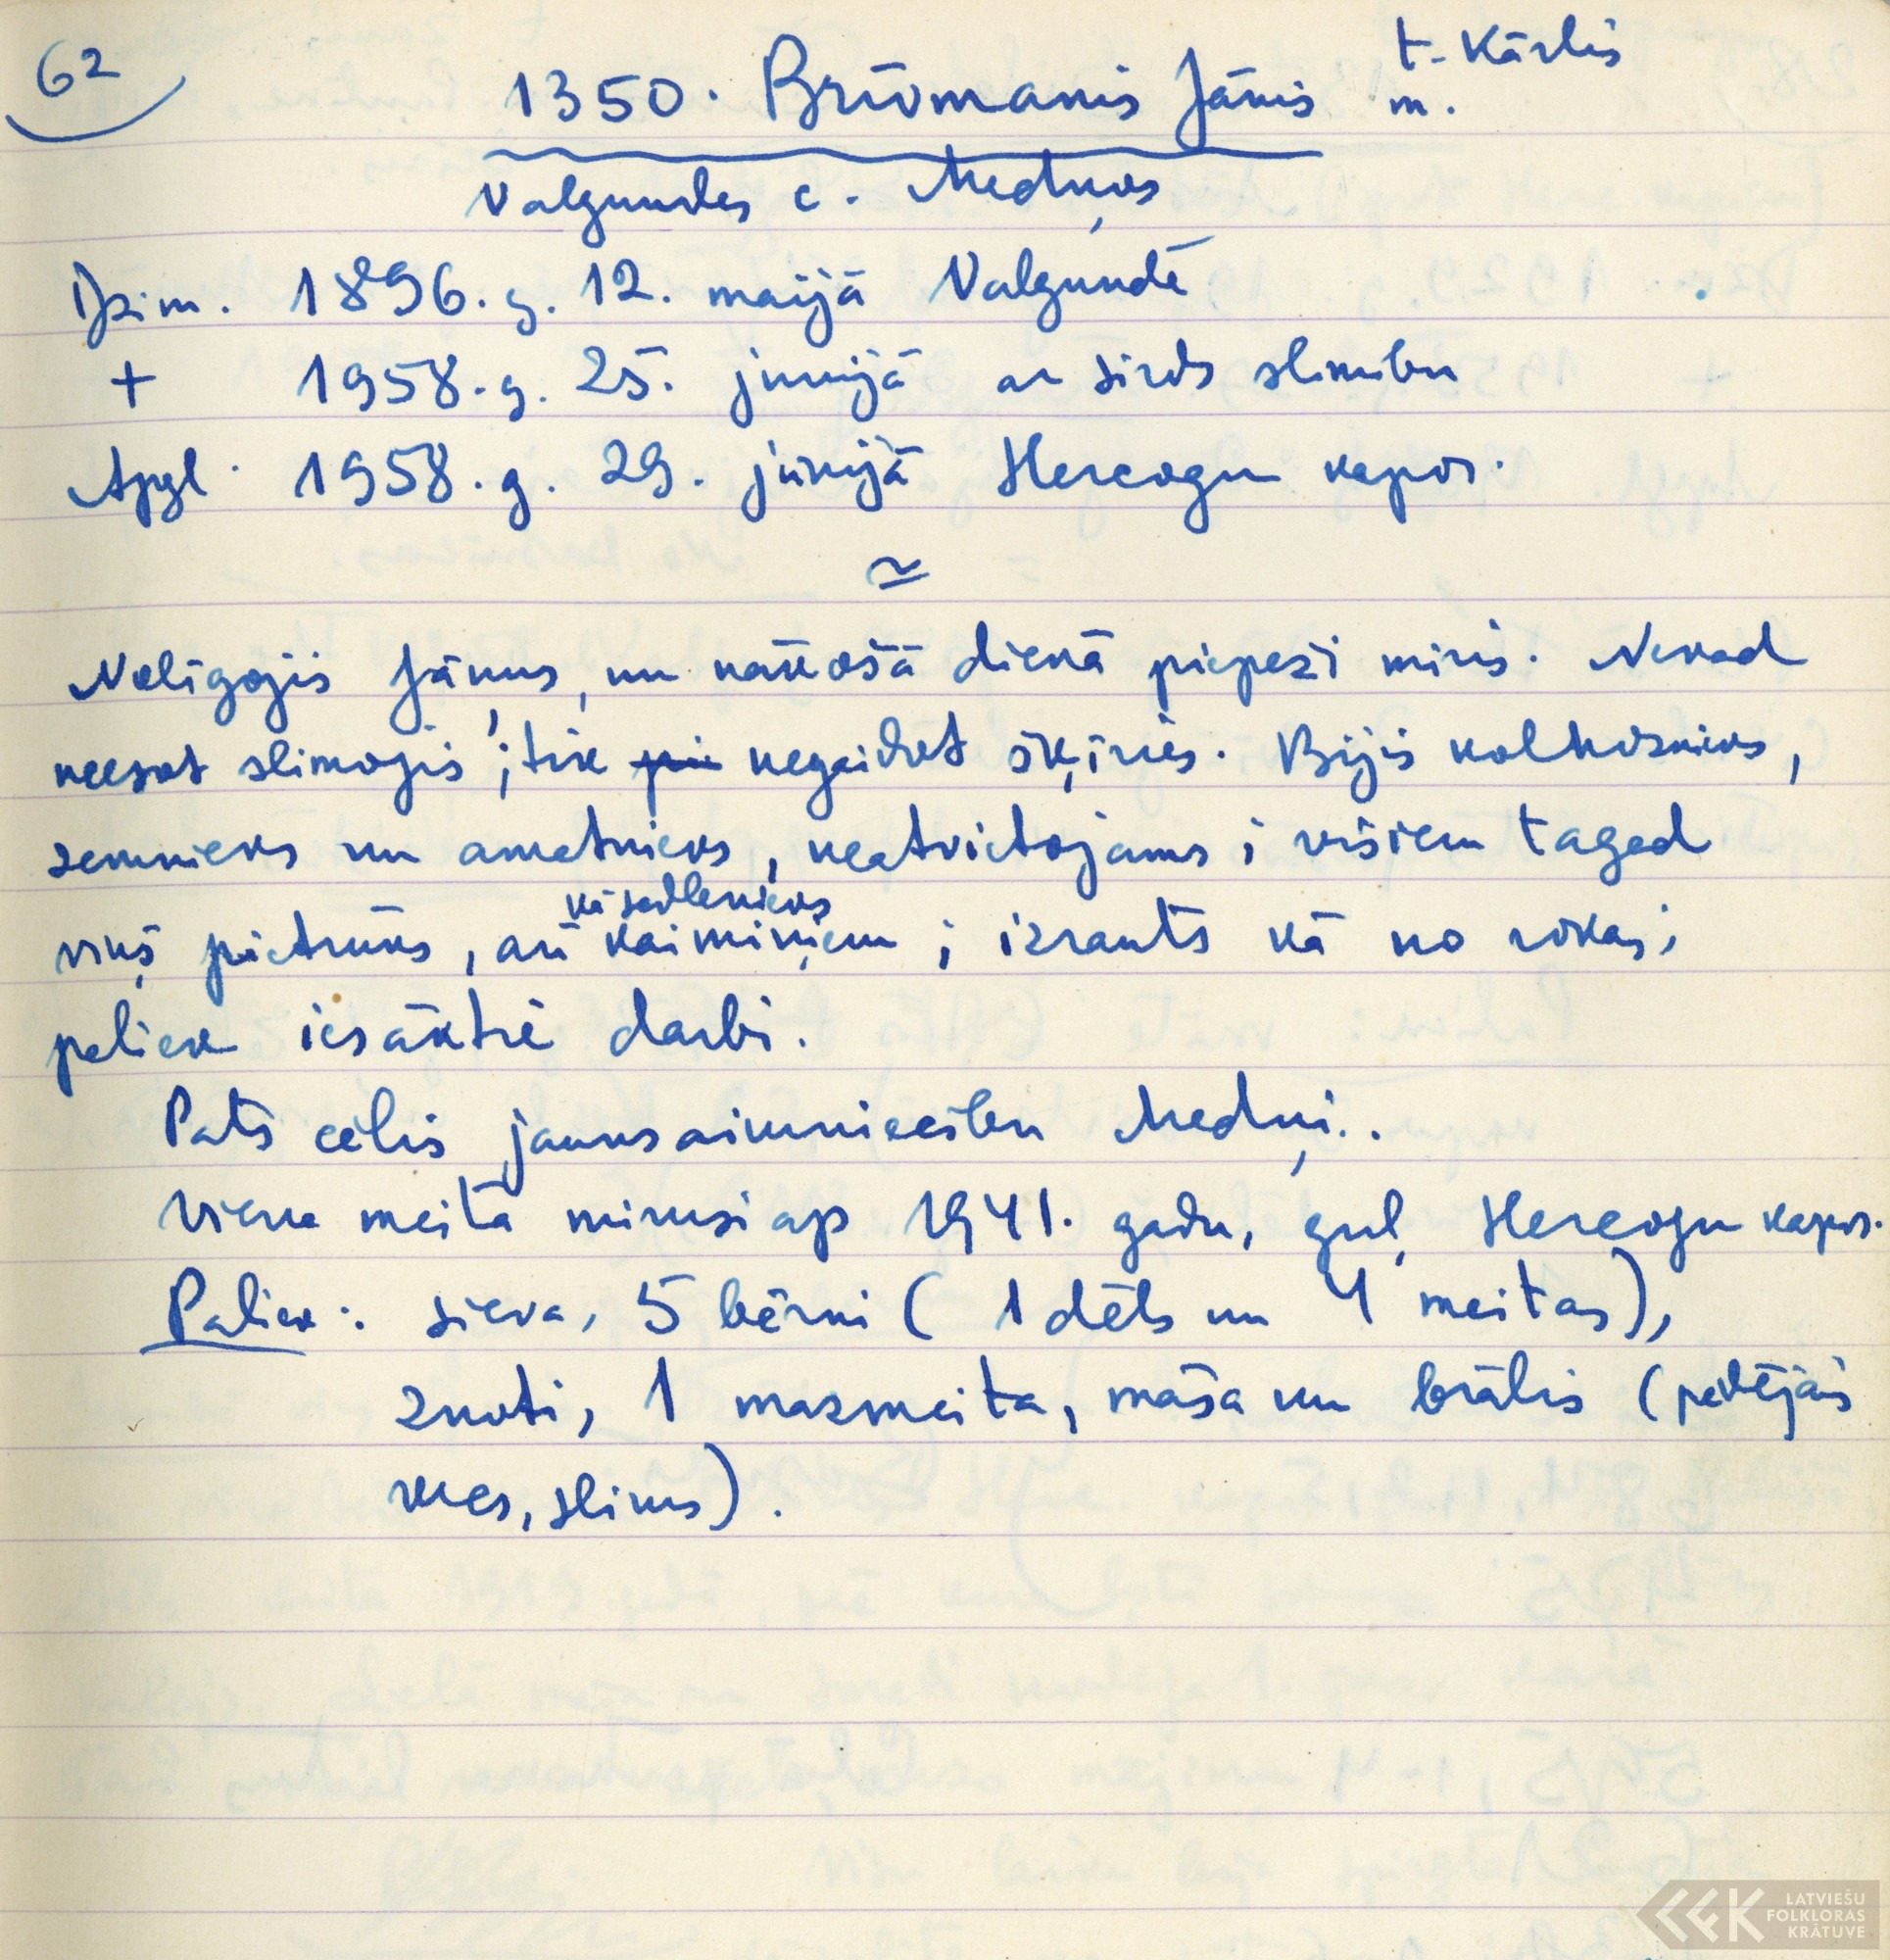 62
t. Kārlis
1350. Brīvmanis Jānis m.
Valgundes c. Medņos
Dzim. 1896. g. 12. maijā Valgundē
+ 1958. g. 25. jūnijā ar sirds slimību
Apgl. 1958. g. 29. jūnijā Hercogu kapos.
≃
Nolīgojis Jāņus, un nākošā dienā piepeši miris. Nekad
neesot slimojis; tik negaidot šķīries. Bijis kolhoznieks,
zemnieks un amatnieks, neatvietojams; visiem tagad
kā sadlenieks
viņš pietrūks, arī kaimiņiem; izrauts kā no rokas;
paliek iesāktie darbi.
Pats cēlis jaunsaimniecību Medņi..
Viena meita mirusi ap 1941. gadu, guļ Hercogu kapos.
Paliek: sieva, 5 bērni (1 dēls un 4 meitas),
znoti, 1 mazmeita, māsa un brālis (pēdējais
vecs, slims).
LATVIEŠU
FOLKLORAS
KRĀTUVE